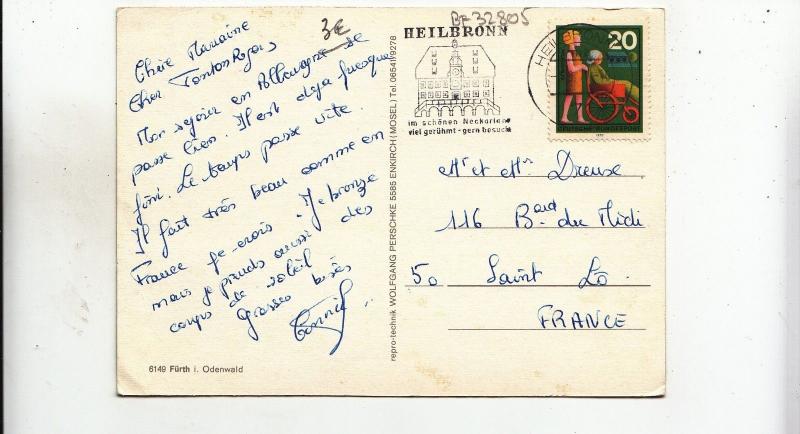 Chère Marraine
Cher Tonton Roger
Mon séjour en Allemagne se
passe bien. Il est déjà presque
fini. Le temps passe vite.
Il fait très beau comme en
France je crois. Je bronze
mais je prends aussi des
coups de soleil.
Grosses bises
3€
BF 32805
HEILBRONN
im schönen Neckarland
viel gerühmt - gern besucht
HEIL
20
DEUTSCHE BUNDESPOST
Mr et Mme Dreuse
116 Bard du Midi
50 Saint Lô
FRANCE
repro-technik WOLFGANG PERSCHKE 5585 ENKIRCH (MOSEL) Tel. 06541/9278
6149 Fürth i. Odenwald